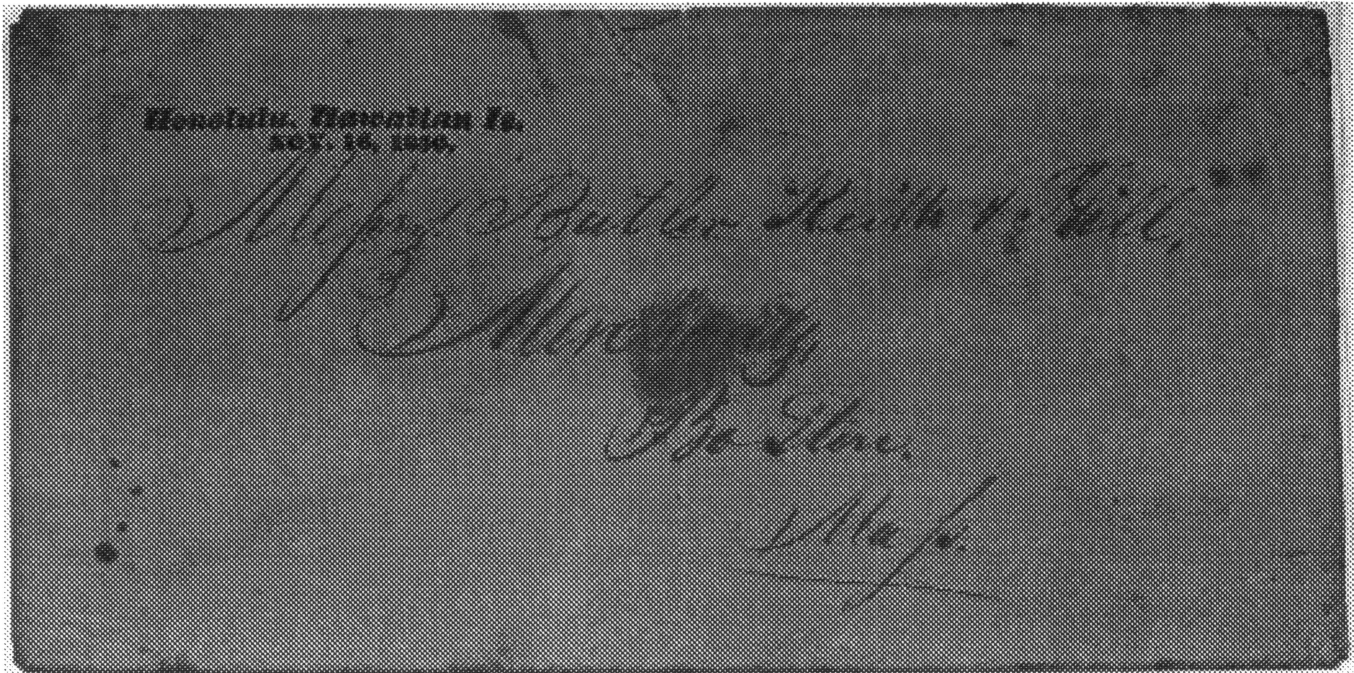 Honolulu, Hawaiian Is.
NOV. 16, 1850.
Messrs Butler Keith & Hill,
Merchants,
Boston.
Mass.